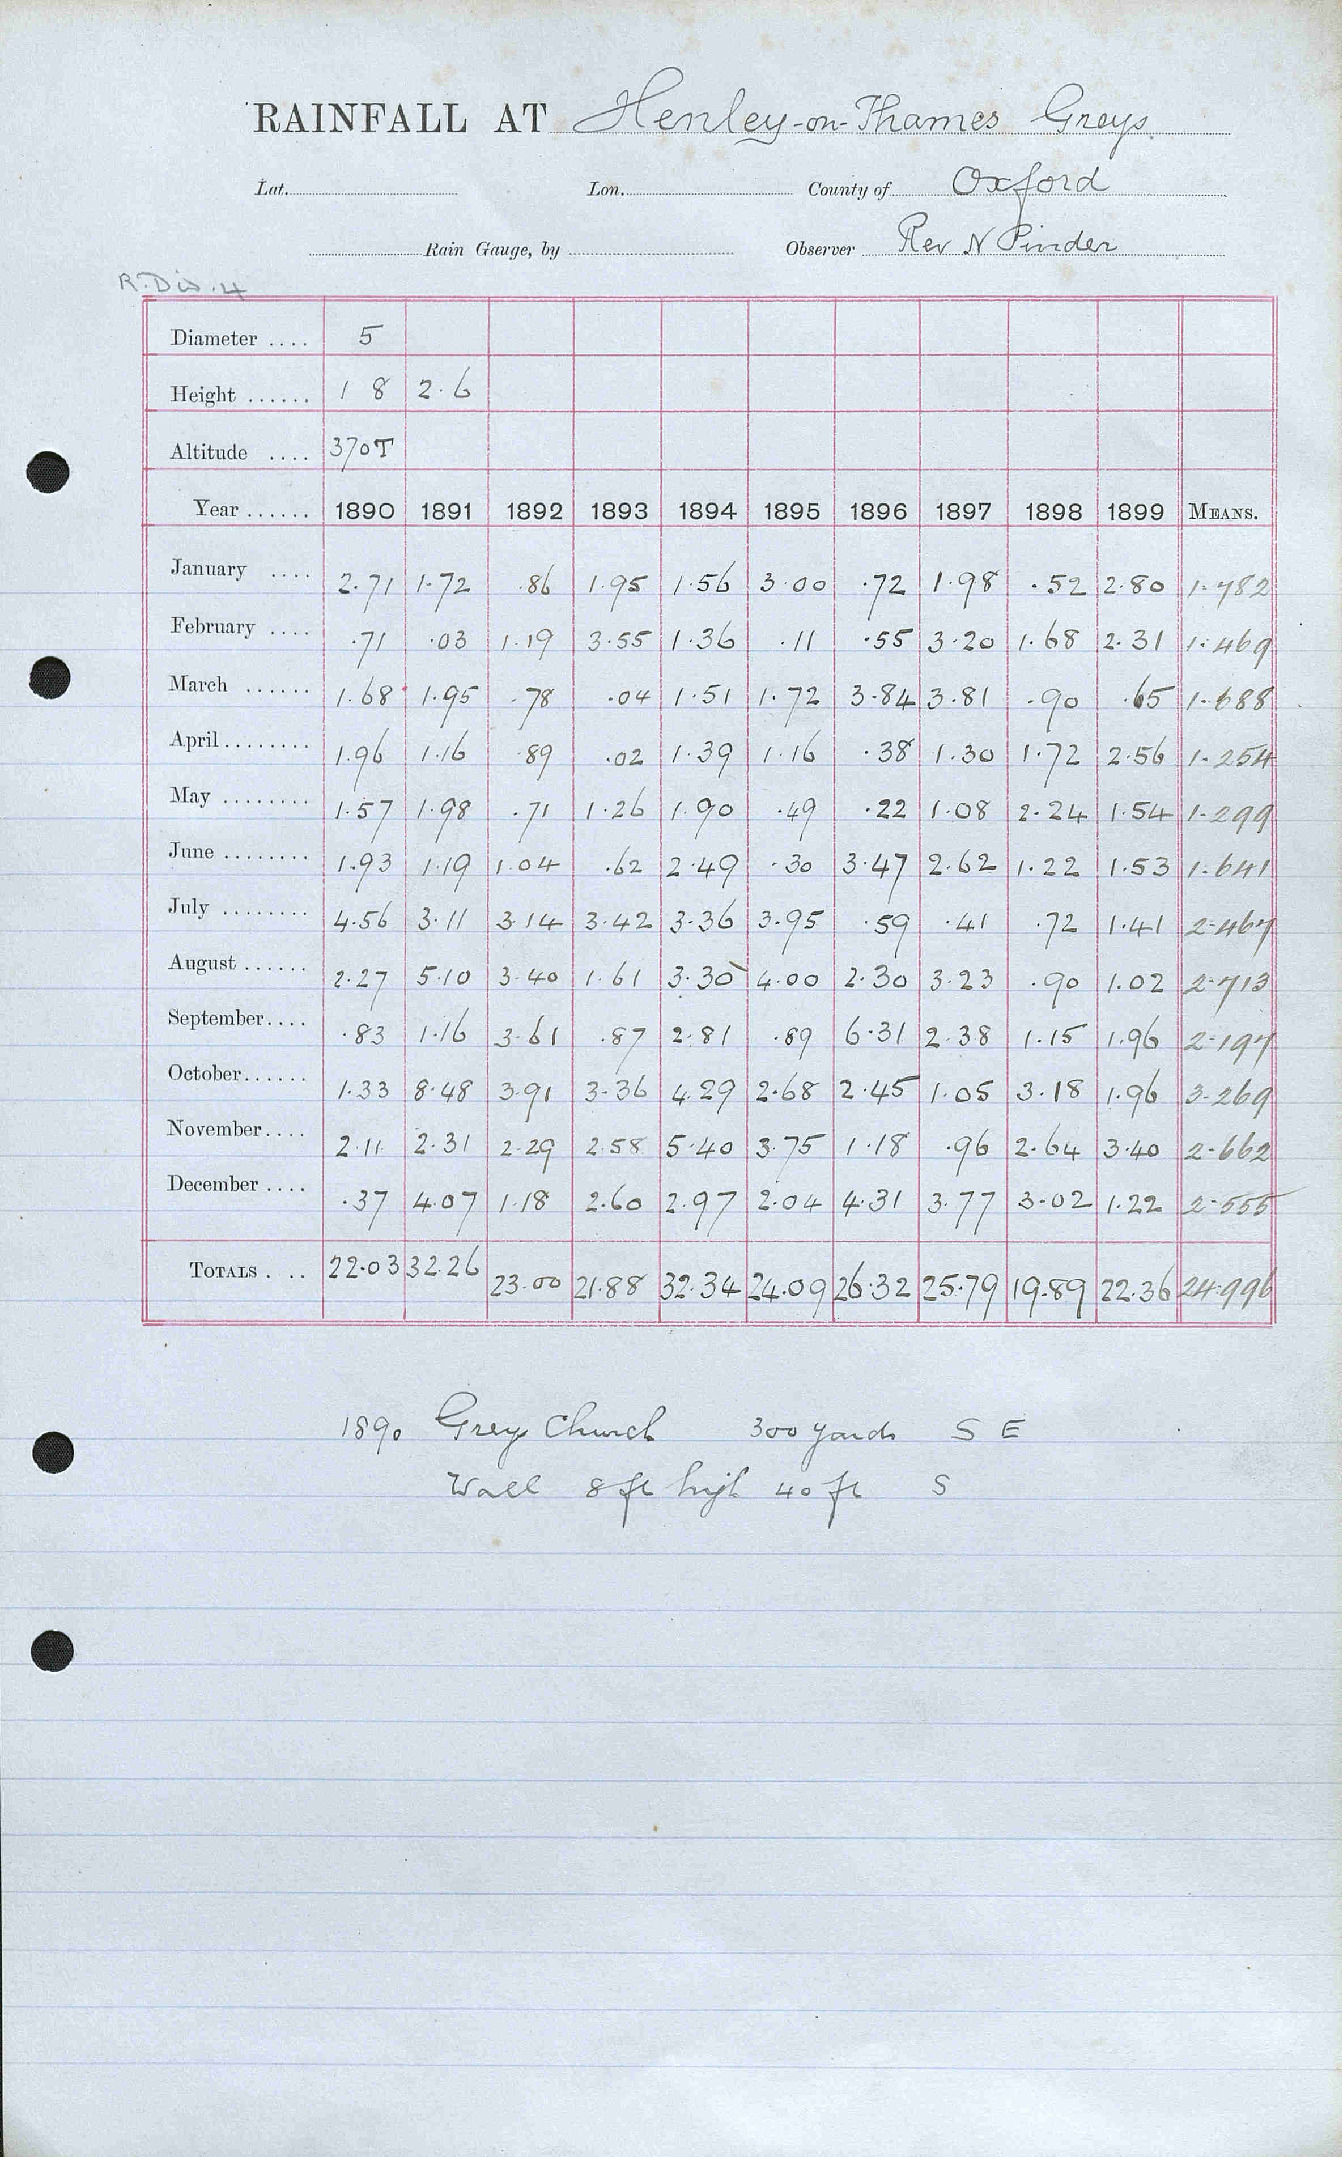 RAINFALL AT Henley-on-Thames Greys
Lat. Lon. County of Oxford
Rain Gauge, by Observer Rev N Pinder
R. Dis. 4
Diameter .... 5
Height ...... 1 8 2.6
Altitude .... 370T
Year ...... 1890 1891 1892 1893 1894 1895 1896 1897 1898 1899 MEANS.
January .... 2.71 1.72 .86 1.95 1.56 3.00 .72 1.98 .52 2.80 1.782
February .... .71 .03 1.19 3.55 1.36 .11 .55 3.20 1.68 2.31 1.469
March ...... 1.68 1.95 .78 .04 1.51 1.72 3.84 3.81 .90 .65 1.688
April ........ 1.96 1.16 .89 .02 1.39 1.16 .38 1.30 1.72 2.56 1.254
May ........ 1.57 1.98 .71 1.26 1.90 .49 .22 1.08 2.24 1.54 1.299
June ........ 1.93 1.19 1.04 .62 2.49 .30 3.47 2.62 1.22 1.53 1.641
July ........ 4.56 3.11 3.14 3.42 3.36 3.95 .59 .41 .72 1.41 2.467
August ...... 2.27 5.10 3.40 1.61 3.30 4.00 2.30 3.23 .90 1.02 2.713
September .... .83 1.16 3.61 .87 2.81 .89 6.31 2.38 1.15 1.96 2.197
October ...... 1.33 8.48 3.91 3.36 4.29 2.68 2.45 1.05 3.18 1.96 3.269
November .... 2.11 2.31 2.29 2.58 5.40 3.75 1.18 .96 2.64 3.40 2.662
December .... .37 4.07 1.18 2.60 2.97 2.04 4.31 3.77 3.02 1.22 2.555
TOTALS . .. 22.03 32.26 23.00 21.88 32.34 24.09 26.32 25.79 19.89 22.36 24.996
1890 Greys Church 300 yards S E
Wall 8 ft high 40 ft S